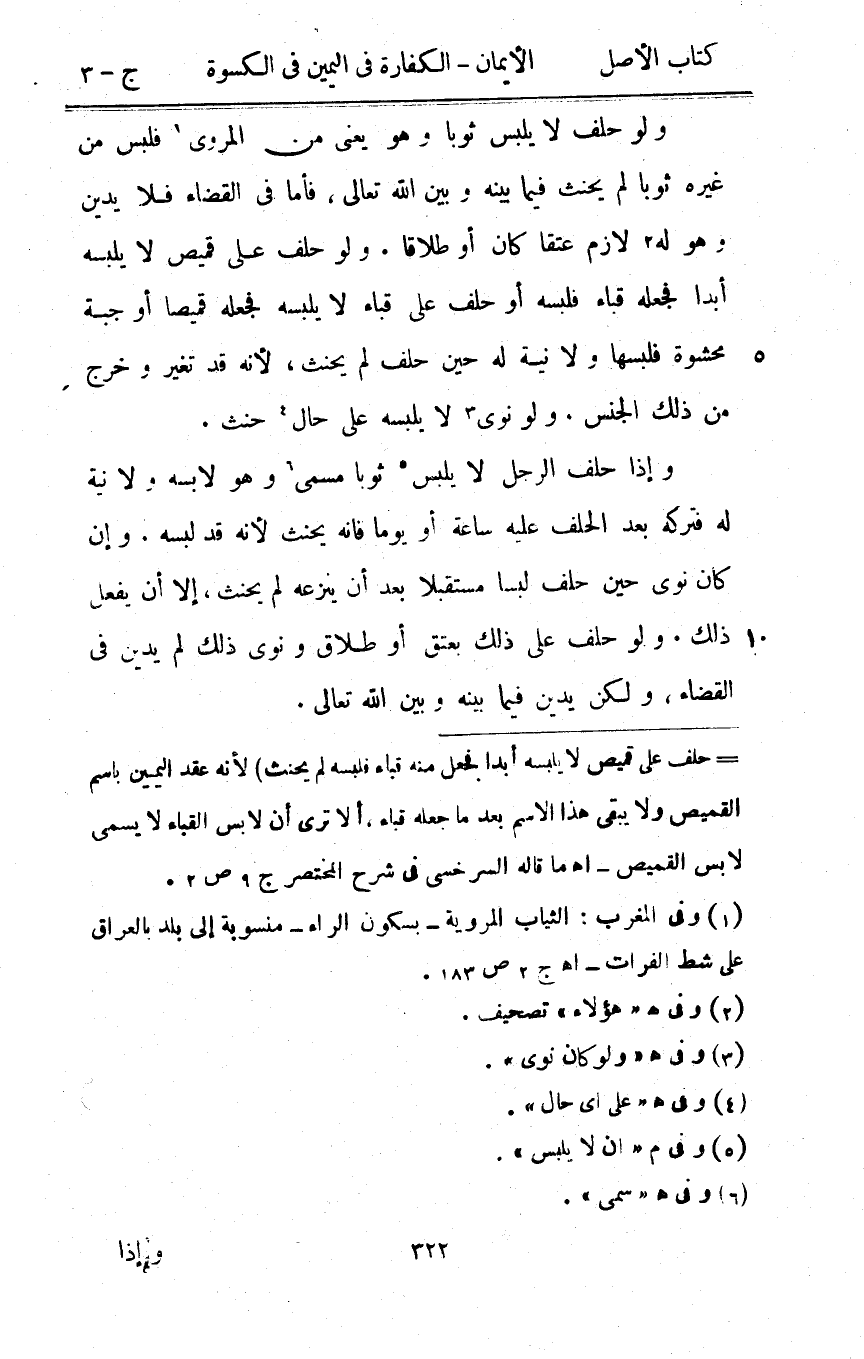 كتاب الأصل الأيمان – الكفارة فى اليمين فى الكسوة ج – ٣
و لو حلف لا يلبس ثوبا و هو يعنى من المروى ١ فلبس من
غيره ثوبا لم يحنث فيما بينه و بين الله تعالى ، فأما فى القضاء فلا يدين
و هو له٢ لازم عتقا كان أو طلاقا . و لو حلف على قميص لا يلبسه
أبدا فجعله قباء فلبسه أو حلف على قباء لا يلبسه فجعله قميصا أو جبة
محشوة فلبسها و لا نية له حين حلف لم يحنث ، لأنه قد تغير و خرج ٥
من ذلك الجنس . و لو نوى٣ لا يلبسه على حال٤ حنث .
و إذا حلف الرجل لا يلبس٥ ثوبا مسمى٦ و هو لابسه و لا نية
له فتركه بعد الحلف عليه ساعة أو يوما فانه يحنث لأنه قد لبسه . و إن
كان نوى حين حلف لبسا مستقبلا بعد أن ينزعه لم يحنث ، إلا أن يفعل
ذلك . و لو حلف على ذلك بعتق أو طلاق و نوى ذلك لم يدين فى ١٠
القضاء ، و لكن يدين فيما بينه و بين الله تعالى .
= حلف على قميص لا يلبسه أبدا فجعل منه قباء فلبسه لم يحنث) لأنه عقد اليمين باسم
القميص ولا يبقى هذا الاسم بعد ما جعله قباء ، ألا ترى أن لابس القباء لا يسمى
لابس القميص – اه ما قاله السرخسى فى شرح المختصر ج ٩ ص ٢ .
(١) وفى المغرب : الثياب المروية – بسكون الراء – منسوبة إلى بلد بالعراق
على شط الفرات – اه ج ٢ ص ١٨٣ .
(٢) و فى ه « هؤلاء » تصحيف .
(٣) و فى ه « ولو كان نوى » .
(٤) و فى ه « على اى حال » .
(٥) و فى م « ان لا يلبس » .
(٦) و فى ه « سمى » .
٣٢٢ و إذا